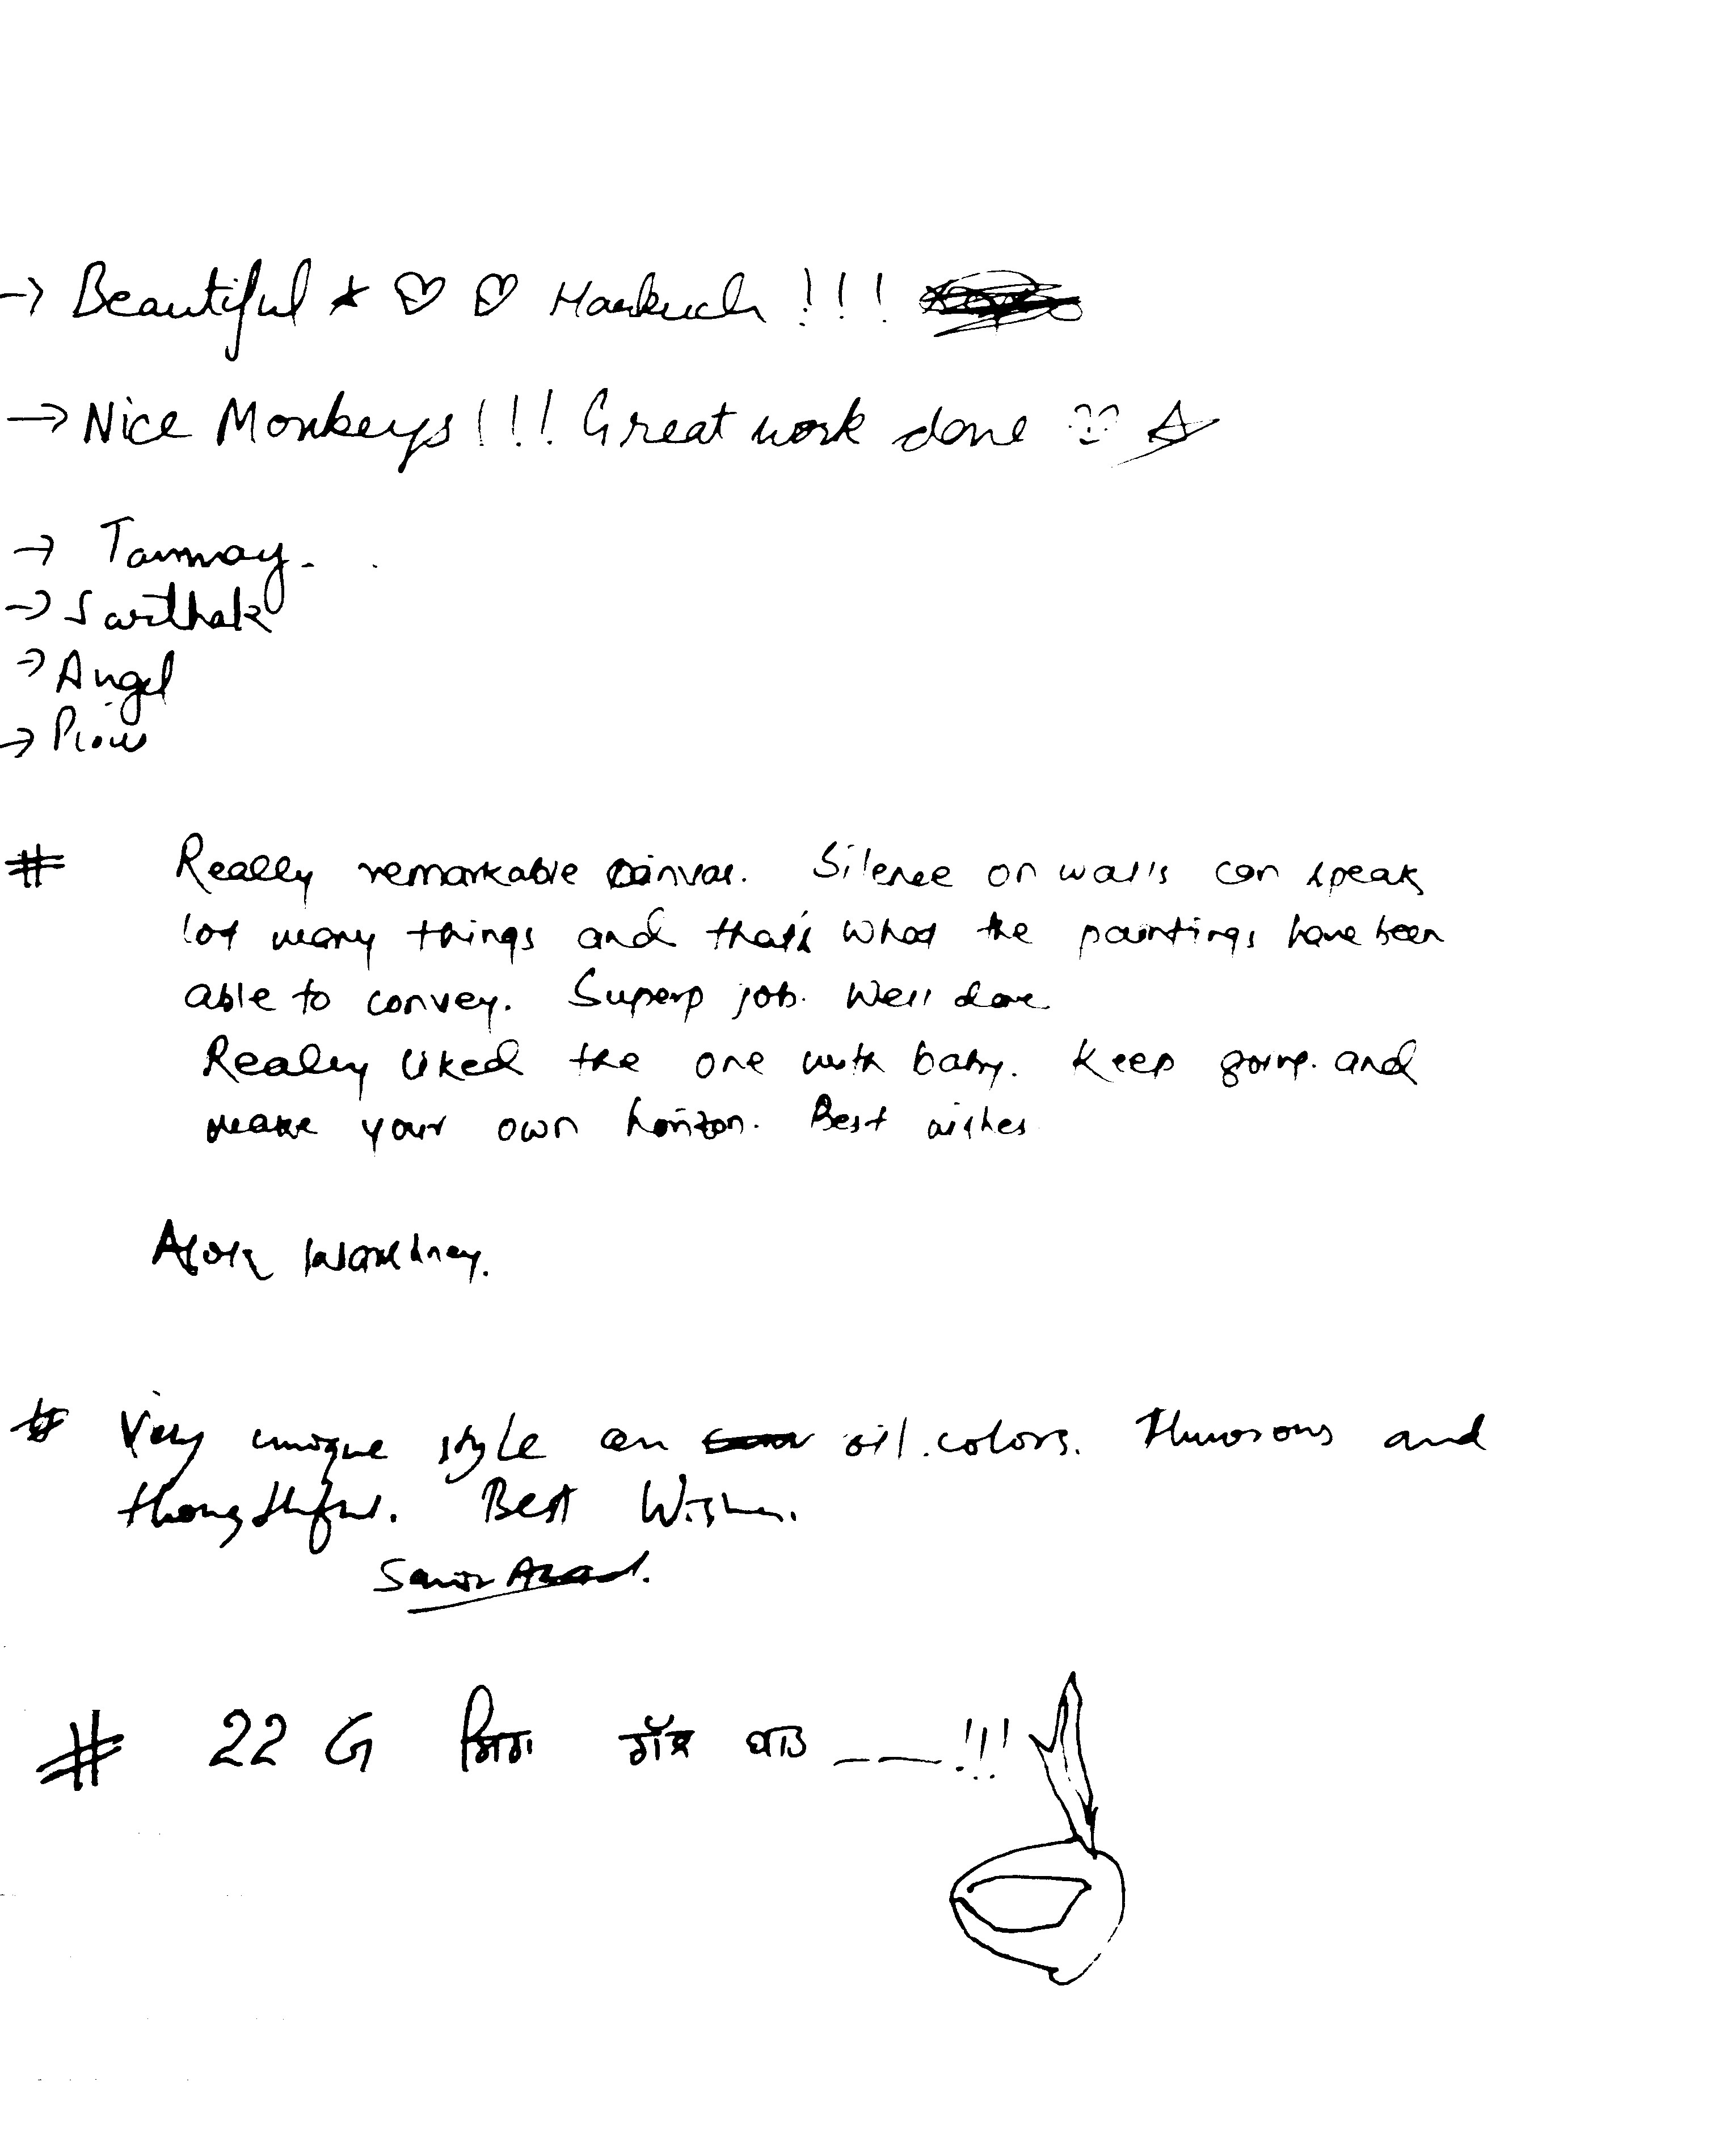 → Beautiful ★ ♡ ♡ !!!
→ Nice Monkeys!!! Great work done ☆
→ Tanmay.
→ Sarthak
→ Angel
→
# Really remarkable canvas. Silence on walls can speak
lot many things and that's what the paintings have been
able to convey. Superp job. Well done
Really liked the one with baby. Keep going. and
make your own horizon. Best wishes
Alok
# Very unique style on oil colors. and
Best Wishes.
# 22 G ਗੱਲ __ __ !!!